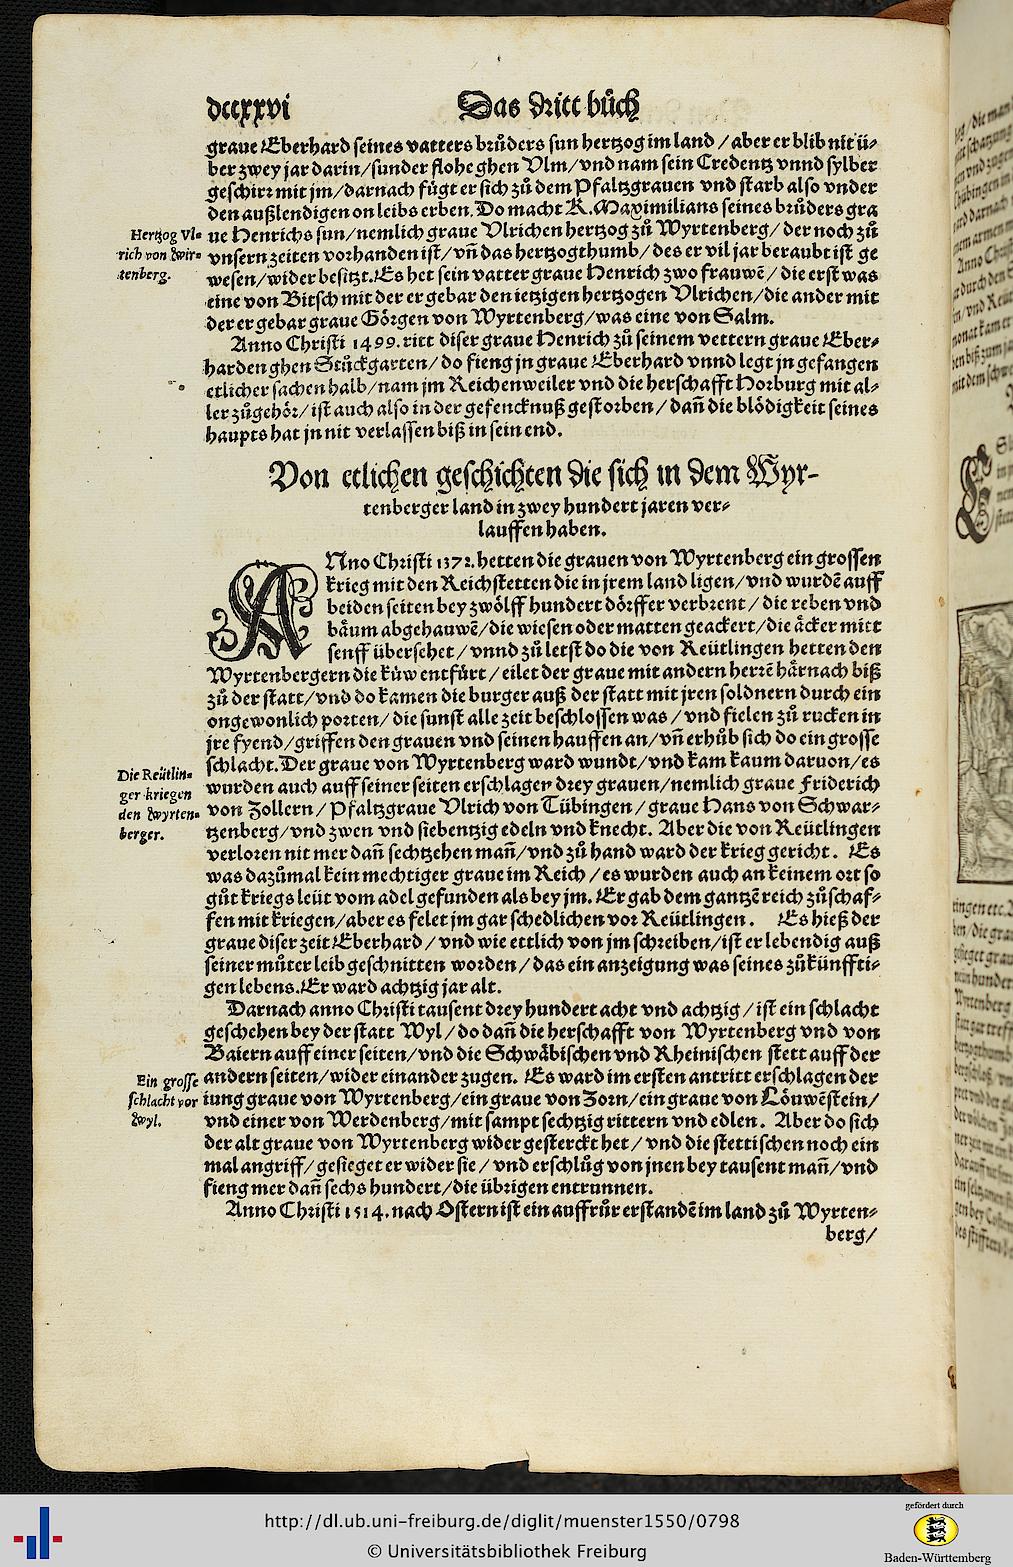 dccxxvi Das dritt bůch
graue Eberhard seines vatters brůders sun hertzog im land / aber er blib nit ü-
ber zwey jar darin/sunder flohe ghen Vlm/vnd nam sein Credentz vnnd sylber
geschirr mit jm/darnach fügt er sich zů dem Pfaltzgrauen vnd starb also vnder
den außlendigen on leibs erben. Do macht K. Maximilians seines brůders gra
Hertzog Vl-
rich von Wir-
tenberg.
ue Henrichs sun/nemlich graue Vlrichen hertzog zů Wyrtenberg/der noch zů
vnsern zeiten vorhanden ist/vñ das hertzogthumb/des er vil jar beraubt ist ge
wesen/wider besitzt. Es het sein vatter graue Henrich zwo frauwē/die erst was
eine von Bitsch mit der er gebar den ietzigen hertzogen Vlrichen/die ander mit
der er gebar graue Görgen von Wyrtenberg/was eine von Salm.
Anno Christi 1499. ritt diser graue Henrich zů seinem vettern graue Eber-
harden ghen Stůckgarten/do fieng jn graue Eberhard vnnd legt jn gefangen
etlicher sachen halb/nam jm Reichenweiler vnd die herschafft Horburg mit al-
ler zůgehör/ist auch also in der gefencknuß gestorben/dañ die blödigkeit seines
haupts hat jn nit verlassen biß in sein end.
Von etlichen geschichten die sich in dem Wyr-
tenberger land in zwey hundert jaren ver-
lauffen haben.
ANno Christi 1372. hetten die grauen von Wyrtenberg ein grossen
krieg mit den Reichstetten die in jrem land ligen/vnd wurdē auff
beiden seiten bey zwölff hundert dörffer verbrent/die reben vnd
bäum abgehauwē/die wiesen oder matten geackert/die äcker mitt
senff übersehet/vnnd zů letst do die von Reütlingen hetten den
Wyrtenbergern die küw entfürt/eilet der graue mit andern herrē härnach biß
zů der statt/vnd do kamen die burger auß der statt mit jren soldnern durch ein
ongewonlich porten/die sunst alle zeit beschlossen was/vnd fielen zů rucken in
jre fyend/griffen den grauen vnd seinen hauffen an/vñ erhůb sich do ein grosse
Die Reütlin-
ger kriegen
den Wyrten-
berger.
schlacht. Der graue von Wyrtenberg ward wundt/vnd kam kaum daruon/es
wurden auch auff seiner seiten erschlagen drey grauen/nemlich graue Friderich
von Zollern/Pfaltzgraue Vlrich von Tübingen/graue Hans von Schwar-
tzenberg/vnd zwen vnd siebentzig edeln vnd knecht. Aber die von Reütlingen
verloren nit mer dañ sechtzehen mañ/vnd zů hand ward der krieg gericht. Es
was dazůmal kein mechtiger graue im Reich/es wurden auch an keinem ort so
gůt kriegs leüt vom adel gefunden als bey jm. Er gab dem gantzē reich zůschaf-
fen mit kriegen/aber es felet jm gar schedlichen vor Reütlingen. Es hieß der
graue diser zeit Eberhard/vnd wie ettlich von jm schreiben/ist er lebendig auß
seiner můter leib geschnitten worden/das ein anzeigung was seines zůkünffti-
gen lebens. Er ward achtzig jar alt.
Darnach anno Christi tausent drey hundert acht vnd achtzig/ist ein schlacht
geschehen bey der statt Wyl/do dañ die herschafft von Wyrtenberg vnd von
Baiern auff einer seiten/vnd die Schwäbischen vnd Rheinischen stett auff der
Ein grosse
schlacht vor
Wyl.
andern seiten/wider einander zugen. Es ward im ersten antritt erschlagen der
iung graue von Wyrtenberg/ein graue von Zorn/ein graue von Löuwēstein/
vnd einer von Werdenberg/mit sampt sechtzig rittern vnd edlen. Aber do sich
der alt graue von Wyrtenberg wider gesterckt het/vnd die stettischen noch ein
mal angriff/gesieget er wider sie/vnd erschlůg von jnen bey tausent mañ/vnd
fieng mer dañ sechs hundert/die übrigen entrunnen.
Anno Christi 1514. nach Ostern ist ein auffrůr erstandē im land zů Wyrten-
berg/
http://dl.ub.uni-freiburg.de/diglit/muenster1550/0798
© Universitätsbibliothek Freiburg
gefördert durch
Baden-Württemberg